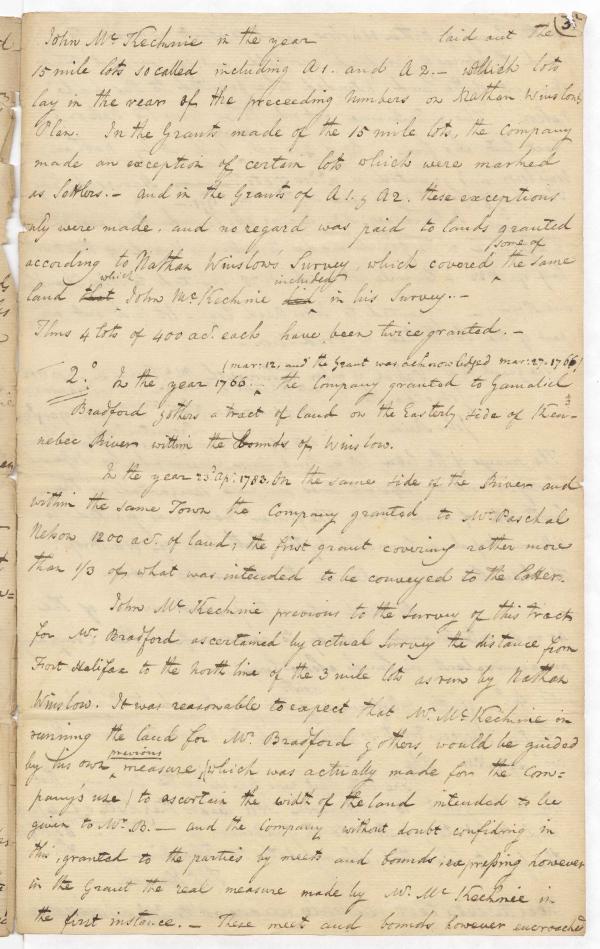 3
John Mc Kechnie in the year laid out the
15 mile lots so called including A1. and A2. — which lots
lay in the rear of the preceeding numbers on Nathan Winslow's
Plan. In the Grants made of the 15 mile lots, the Company
made an exception of certain lots which were marked
as Settlers. — and in the Grants of A1. & A2. these exceptions
only were made, and no regard was paid to lands granted
some of
according to Nathan Winslows Survey, which covered the same
which included
land that John McKechnie did in his Survey. —
Thus 4 lots of 400 acs. each have been twice granted. —
(mar: 12, and the Grant was acknowledged mar: 27. 1766)
2.° In the year 1766. the Company granted to Gamaliel
Bradford & others a tract of land on the Easterly side of Ken=
nebec River within the bounds of Winslow.
In the year 23d Apl. 1783. On the same side of the River and
within the same Town the Company granted to Mr. Paschal
Nelson 1200 acs. of land; the first grant covering rather more
than 1/3 of what was intended to be conveyed to the latter.
John Mc Kechnie previous to the Survey of this tract
for Mr. Bradford ascertained by actual Survey the distance from
Fort Halifax to the north line of the 3 mile lots as run by Nathan
Winslow. It was reasonable to expect that Mr. McKechnie in
running the land for Mr. Bradford & others, would be guided
previous
by his own measure (which was actually made for the Com=
pany's use) to ascertain the width of the land intended to be
given to Mr. B. — and the Company without doubt confiding in
this, granted to the parties by meets and bounds, expressing however
in the Grant the real measure made by Mr. Mc Kechnie in
the first instance. — These meet and bounds however encroached